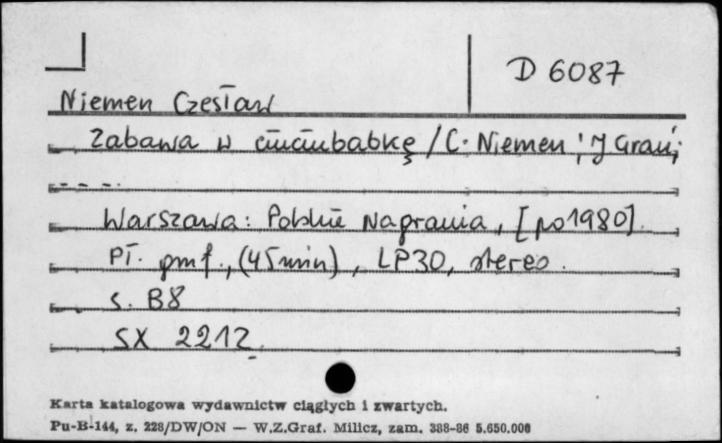 D 6087
Niemen Czesław
Zabawa w ciuciubabkę / C. Niemen ; J Grań;
- - - -.
Warszawa: Polskie Nagrania, [po 1980].
Pł. gmf., (45 min), LP30, stereo.
s. B8
SX 2212
Karta katalogowa wydawnictw ciągłych i zwartych.
Pu-B-144, z. 228/DW/ON — W.Z.Graf. Milicz, zam. 388-86 5.650.000